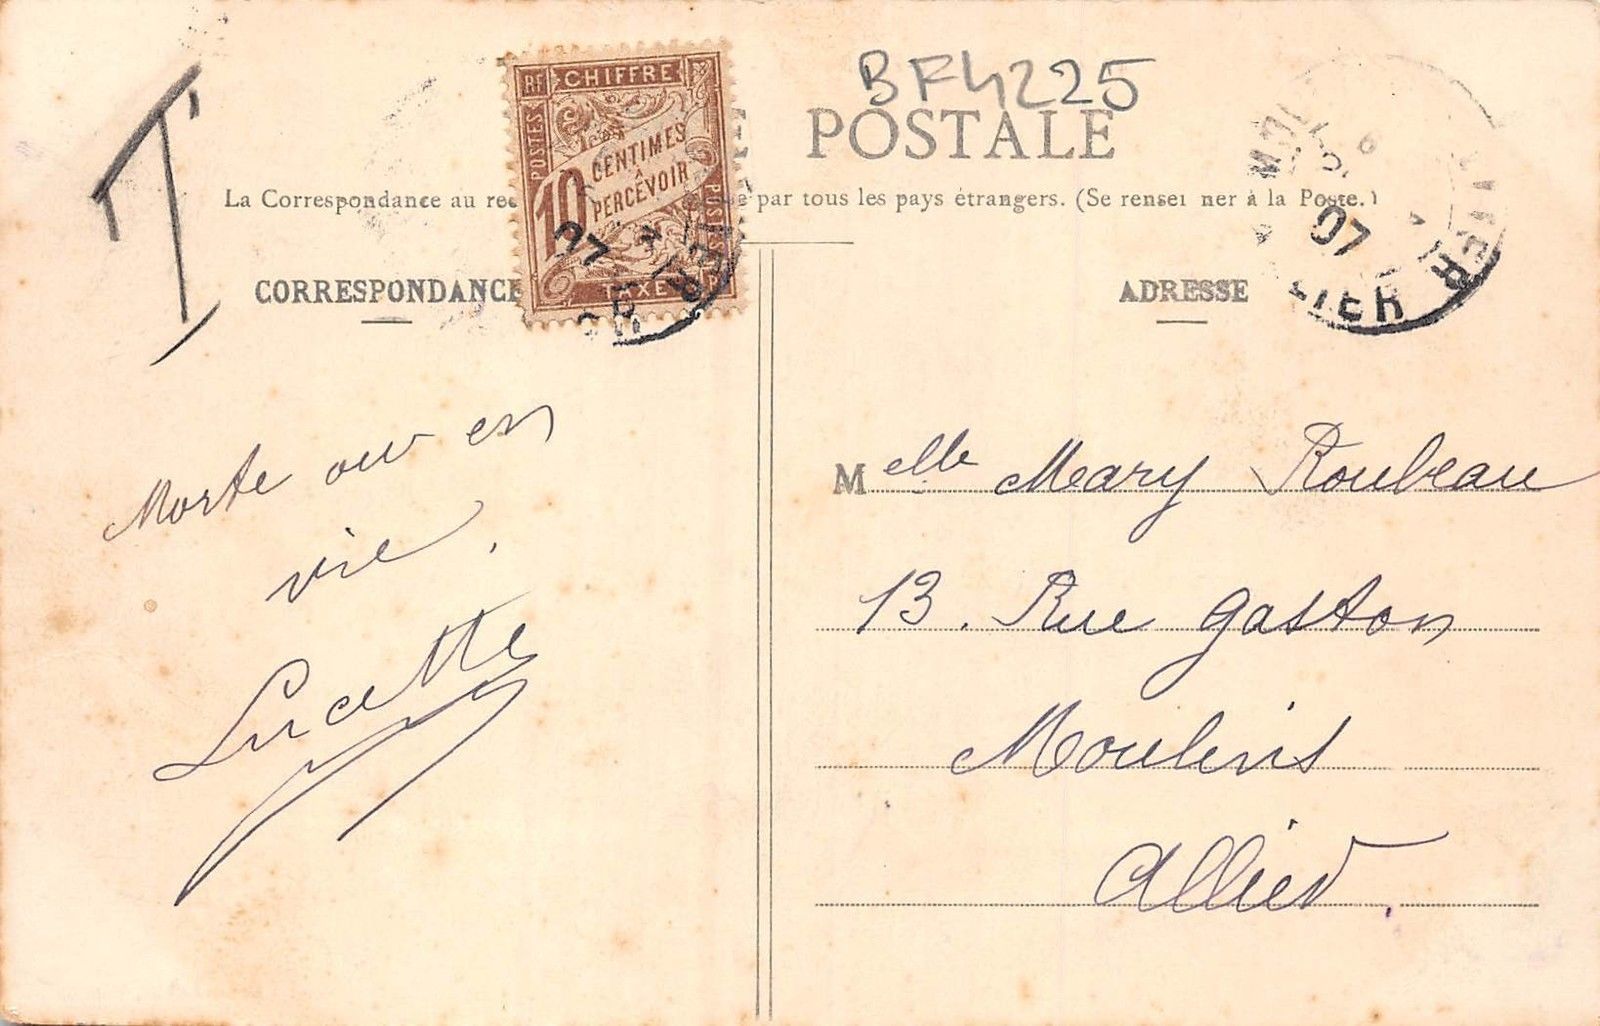 T
BF4225
POSTALE
RF CHIFFRE
POSTES
10 CENTIMES
À
PERCEVOIR
POSTES
TAXE
07
07
La Correspondance au par tous les pays étrangers. (Se rensei ner à la Poste.)
CORRESPONDANCE
ADRESSE
Morte ou en
vie.
Lucette
Melle Mary Roubeau
13. Rue Gaston
Moulins
Allier